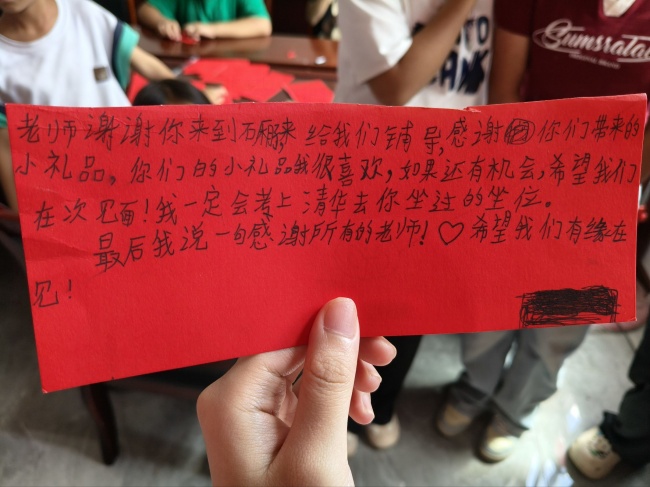 老师谢谢你来到石 来给我们铺导,感谢你们带来的
小礼品。你们的小礼品我很喜欢,如果还有机会,希望我们
在次见面!我一定会考上清华去你坐过的坐位。
最后我说一句感谢所有的老师!♡希望我们有缘在
见!